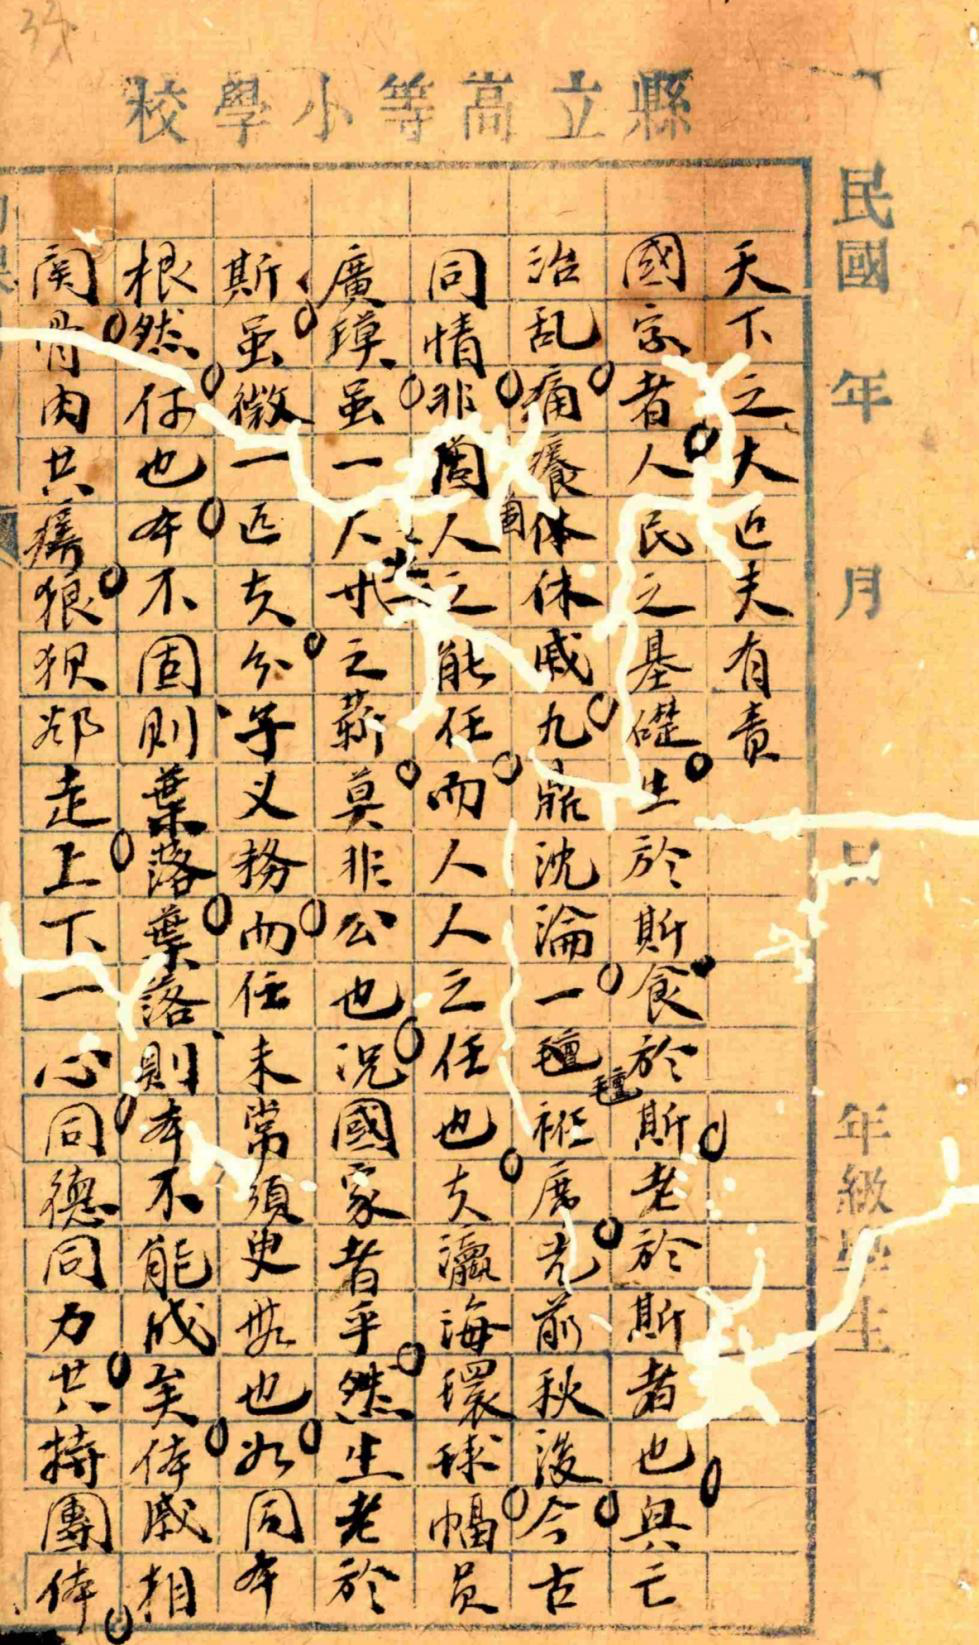 縣立高等小學校
民國 年 月 日 年級學生
天下之大匹夫有責
國家者人民之基礎生於斯食於斯老於斯者也興亡
治乱痛癢体休戚九鼎沈淪一氊袵席先前秋後今古
同情非箇人之能任而人人之任也夫瀛海環球幅員
廣漠虽一人廿之薪莫非公也况國家者乎然生老於
斯虽微一匹夫分子义務而任未常須臾無也如同本
根然何也本不固則葉落葉落則本不能成矣体戚相
関骨肉共瘼狼狽却走上下一心同德同力共持團体